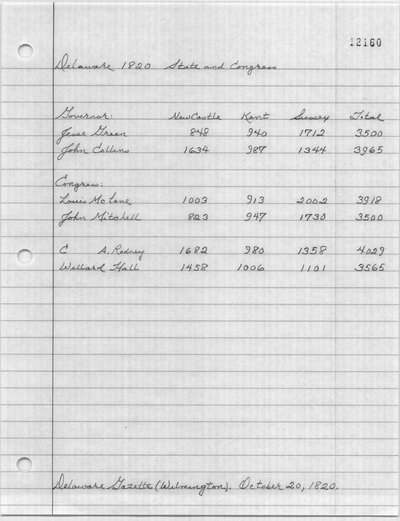 12160
Delaware 1820 State and Congress
Governor: New Castle Kent Sussex Total
Jesse Green 848 940 1712 3500
John Collins 1634 987 1344 3965
Congress:
Louis McLane 1003 913 2002 3918
John Mitchell 823 947 1730 3500
C A. Rodney 1682 980 1358 4029
Willard Hall 1458 1006 1101 3565
Delaware Gazette (Wilmington). October 20, 1820.